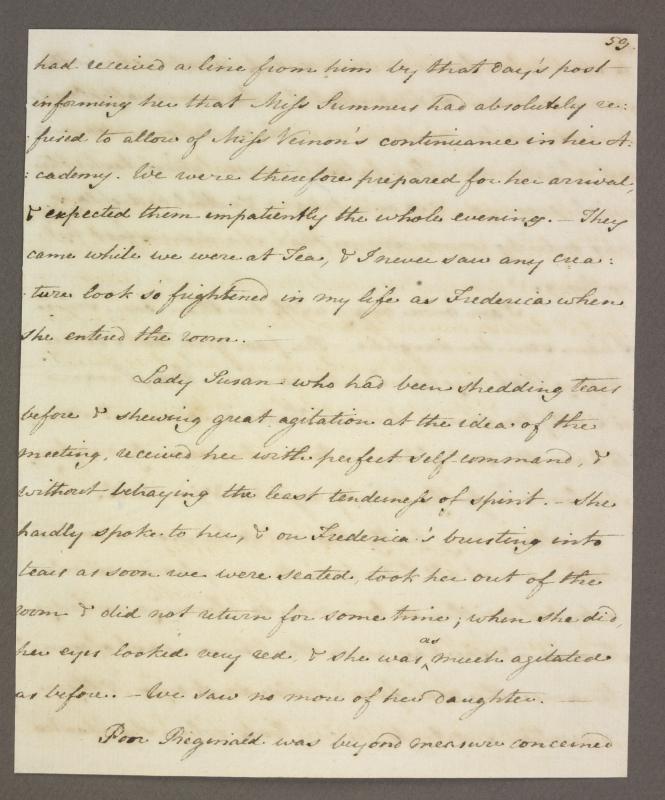 59.
had received a line from him by that day's post
informing her that Miſs Summers had absolutely re:
:fused to allow of Miſs Vernon's continuance in her A:
:cademy. We were therefore prepared for her arrival,
& expected them impatiently the whole evening. — They
came while we were at Tea, & I never saw any crea:
:ture look so frightened in my life as Frederica when
she entered the room. —
Lady Susan who had been shedding tears
before & shewing great agitation at the idea of the
meeting, received her with perfect self command, &
without betraying the least tenderneſs of spirit. — She
hardly spoke to her, & on Frederica's bursting into
tears as soon we were seated, took her out of the
room & did not return for some time; when she did,
her eyes looked very red, & she was as much agitated
as before. — We saw no more of her daughter. —
Poor Reginald was beyond measure concerned